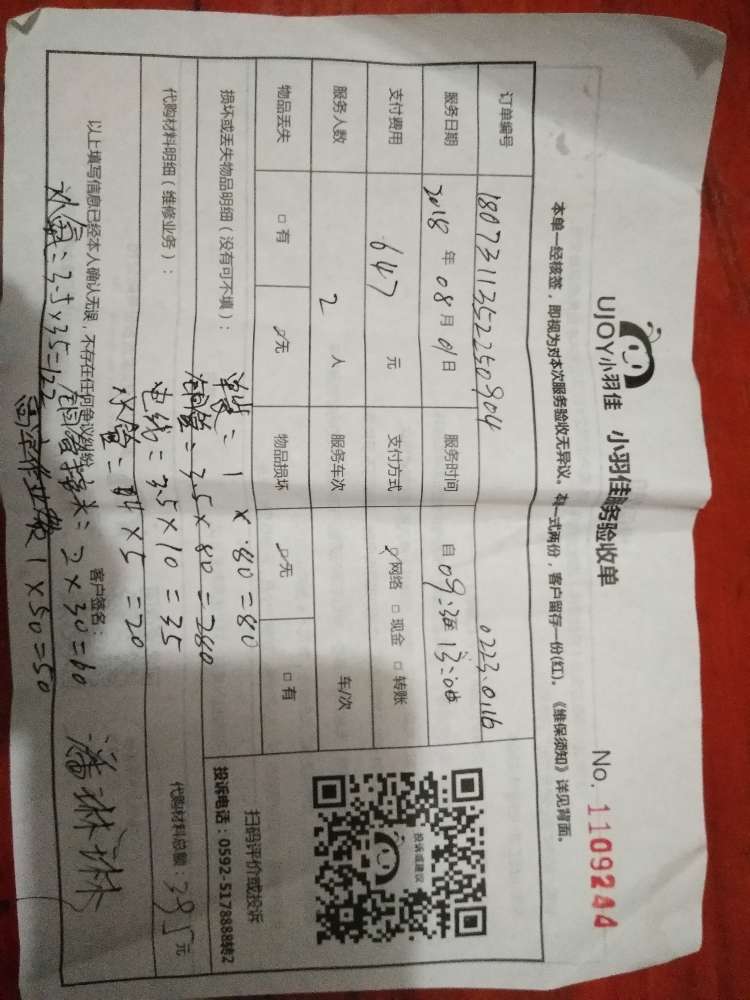 UJOY小羽佳 小羽佳服务验收单
No. 1109244
本单一经核签，即视为对本次服务验收无异议。有一式两份，客户留存一份(红)。《维保须知》详见背面。
订单编号 18073113522250904 0223.0116
服务日期 2018 年 08 月 01 日 服务时间 自 09:
支付费用 647 元 支付方式 网络 □ 现金 □ 转账
服务人数 2 人 服务车次 车/次
物品丢失 □ 有 无 物品损坏 无 □ 有
损坏或丢失物品明细（没有可不填）：
= 1 × 80 = 80
铜管 = 3.5 × 80 = 280
代购材料明细（维修业务）：
电线 = 3.5 × 10 = 35
水管 = 4 × 5 = 20
代购材料总额：395 元
以上填写信息已经本人确认无误，不存在任何争议纠纷
客户签名：潘琳琳
补氟 = 3.5 × 35 = 122
铜管接头 = 2 × 30 = 60
高空作业费 1 × 50 = 50
投诉或建议
扫码评价或投诉
投诉电话：0592-5178888转2